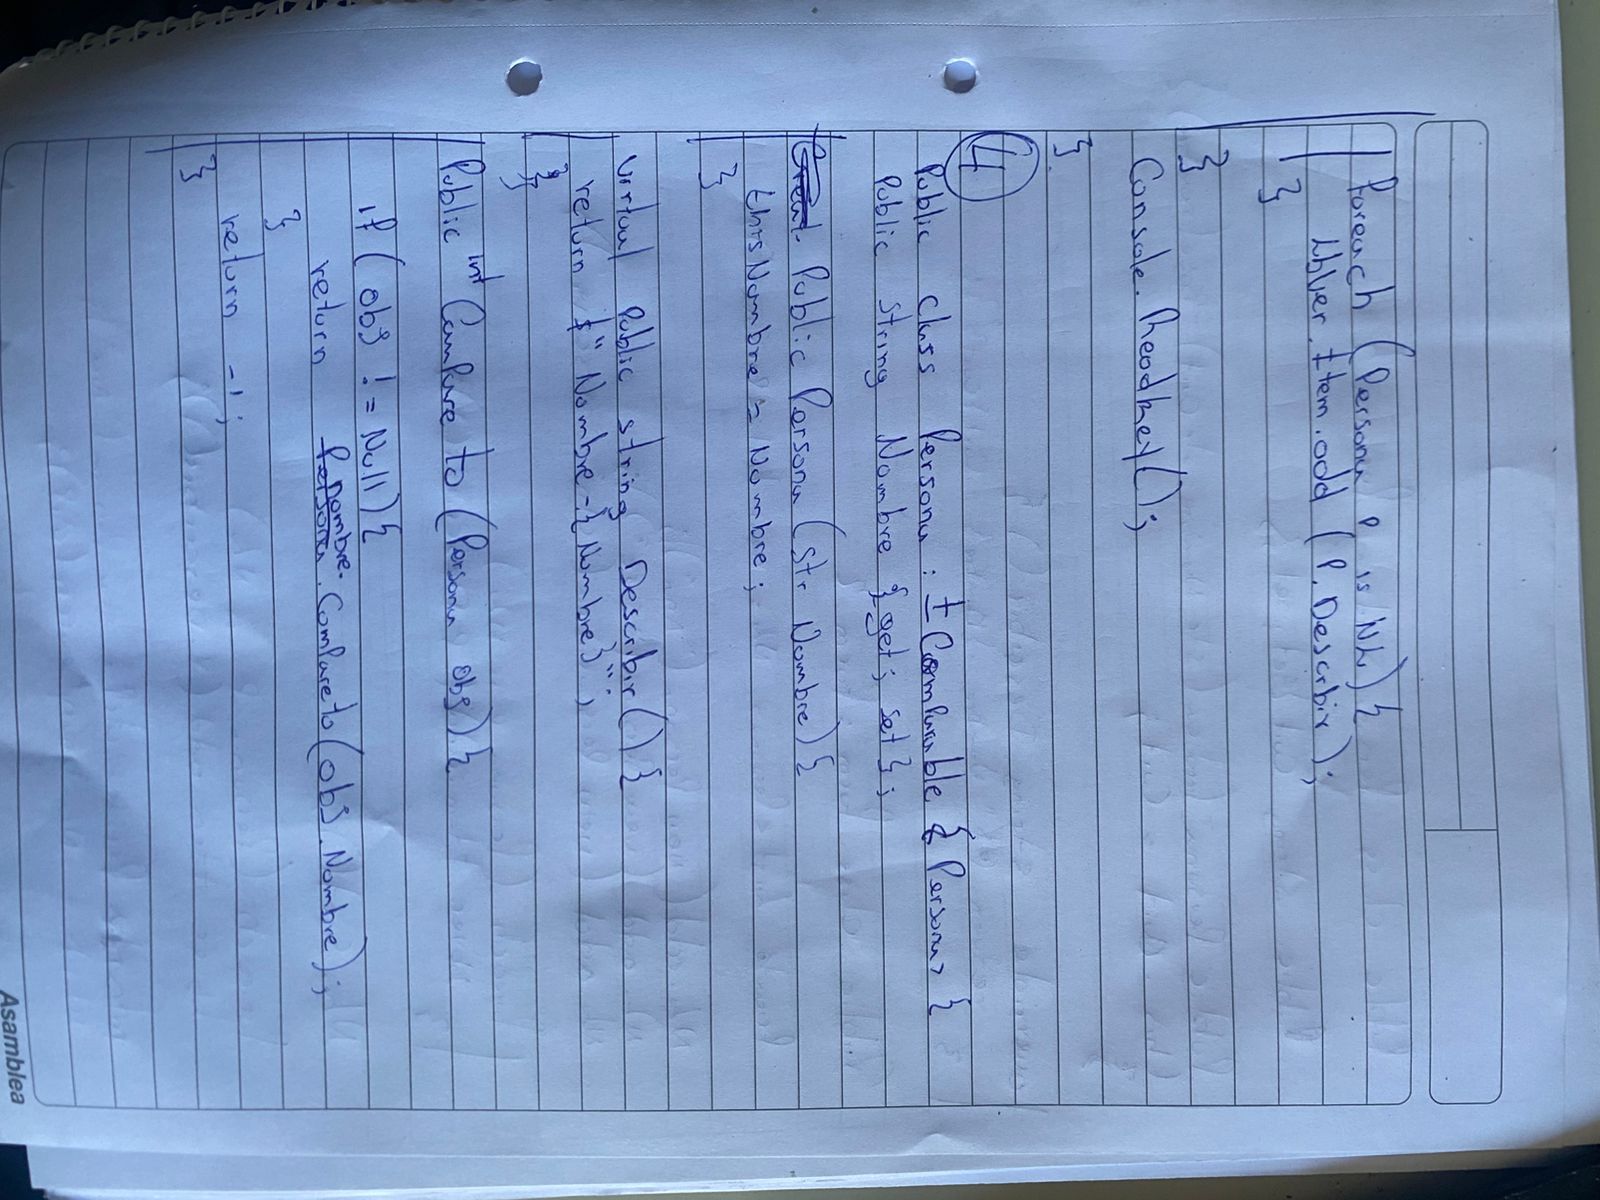 Foreach (Persona P is Nh) {
lbVer.Item.add (P. Describir);
}
}
Console. Readkey();
}
4
Public class Persona : IComparable { Persona> {
Public string Nombre {get; set};
Public Persona (Str Nombre) {
thisNombre = Nombre;
}
Virtual Public string Describir() {
return $" Nombre-{Nombre}";
}
Public int Compare to (Persona obj) {
if (obj != Null) {
return nombre. Compareto (obj. Nombre);
}
return -1;
}
Asamblea